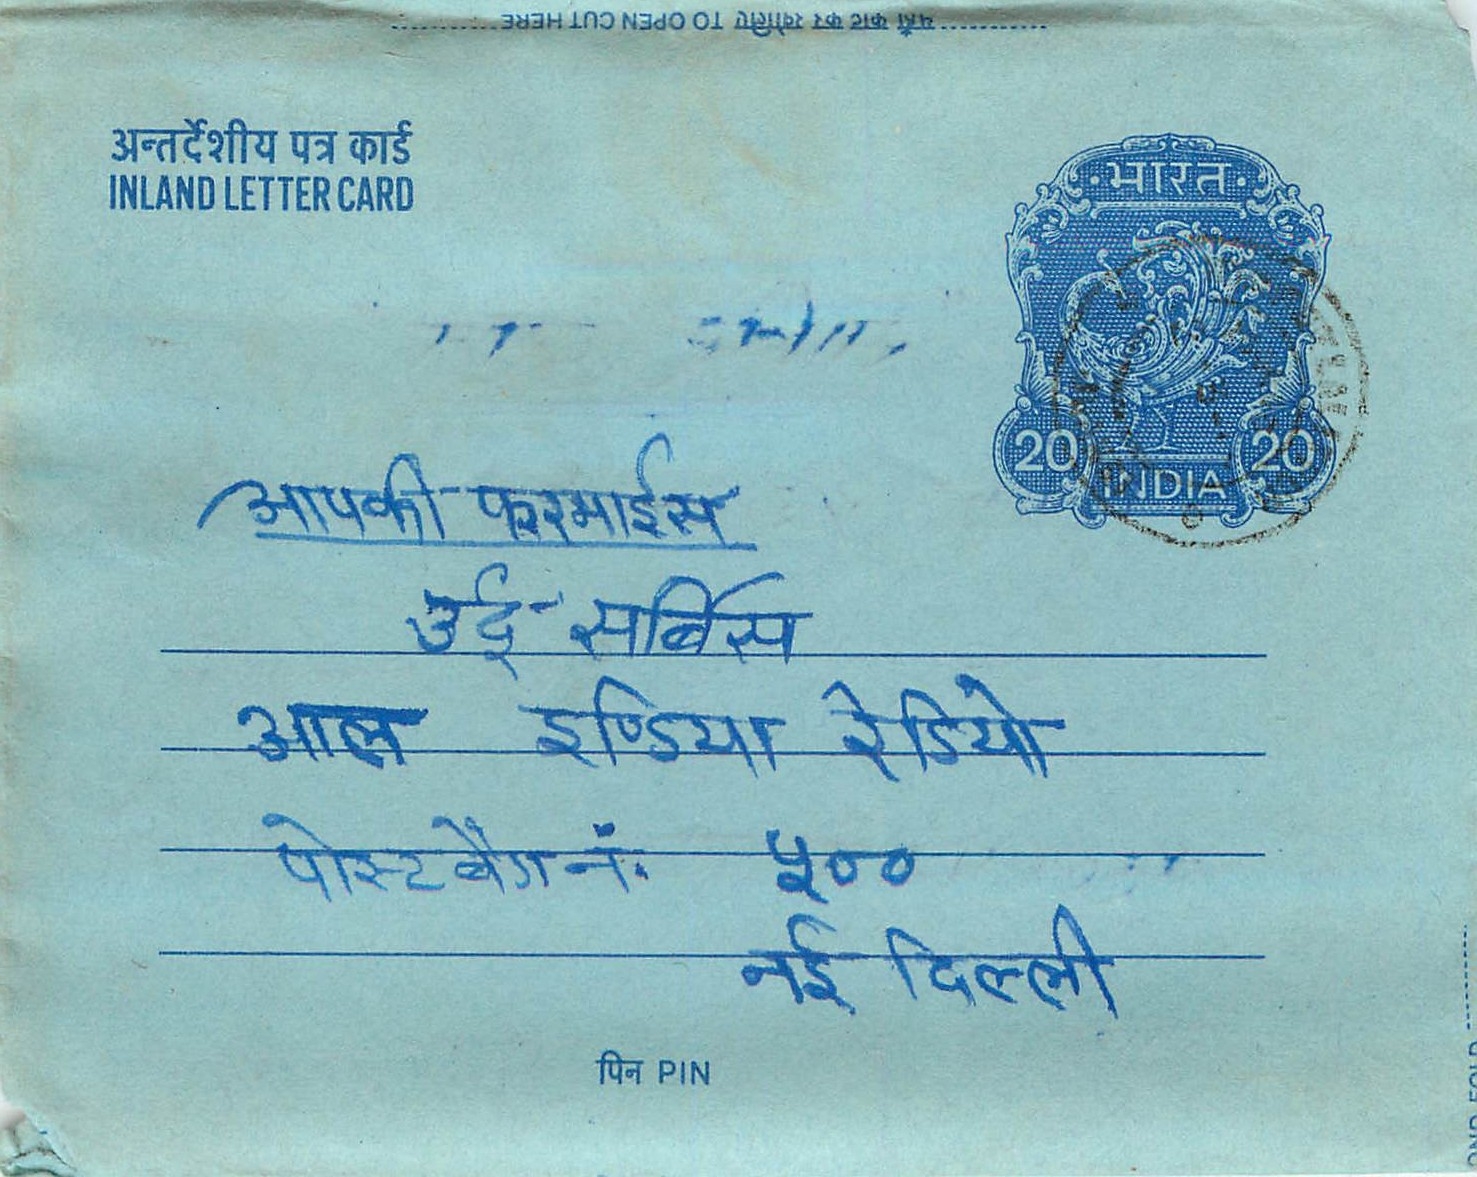 यहाँ काट कर खोलिए TO OPEN CUT HERE
अन्तर्देशीय पत्र कार्ड
INLAND LETTER CARD
भारत
20 20
INDIA
आपकी फरमाईस
उर्दू सर्बिस
आल इण्डिया रेडियो
पोस्ट बैग नं. ५००
नई दिल्ली
पिन PIN
OND FOLD